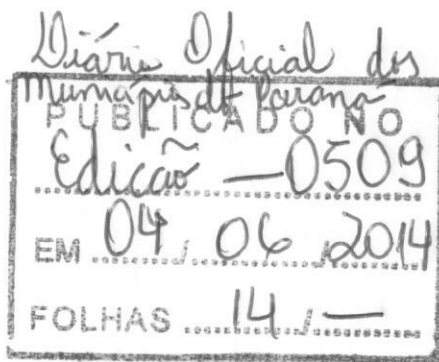 Diário Oficial dos
Municípios do Paraná
PUBLICADO NO
Edição — 0509
EM 04 / 06 / 2014
FOLHAS 14 / —